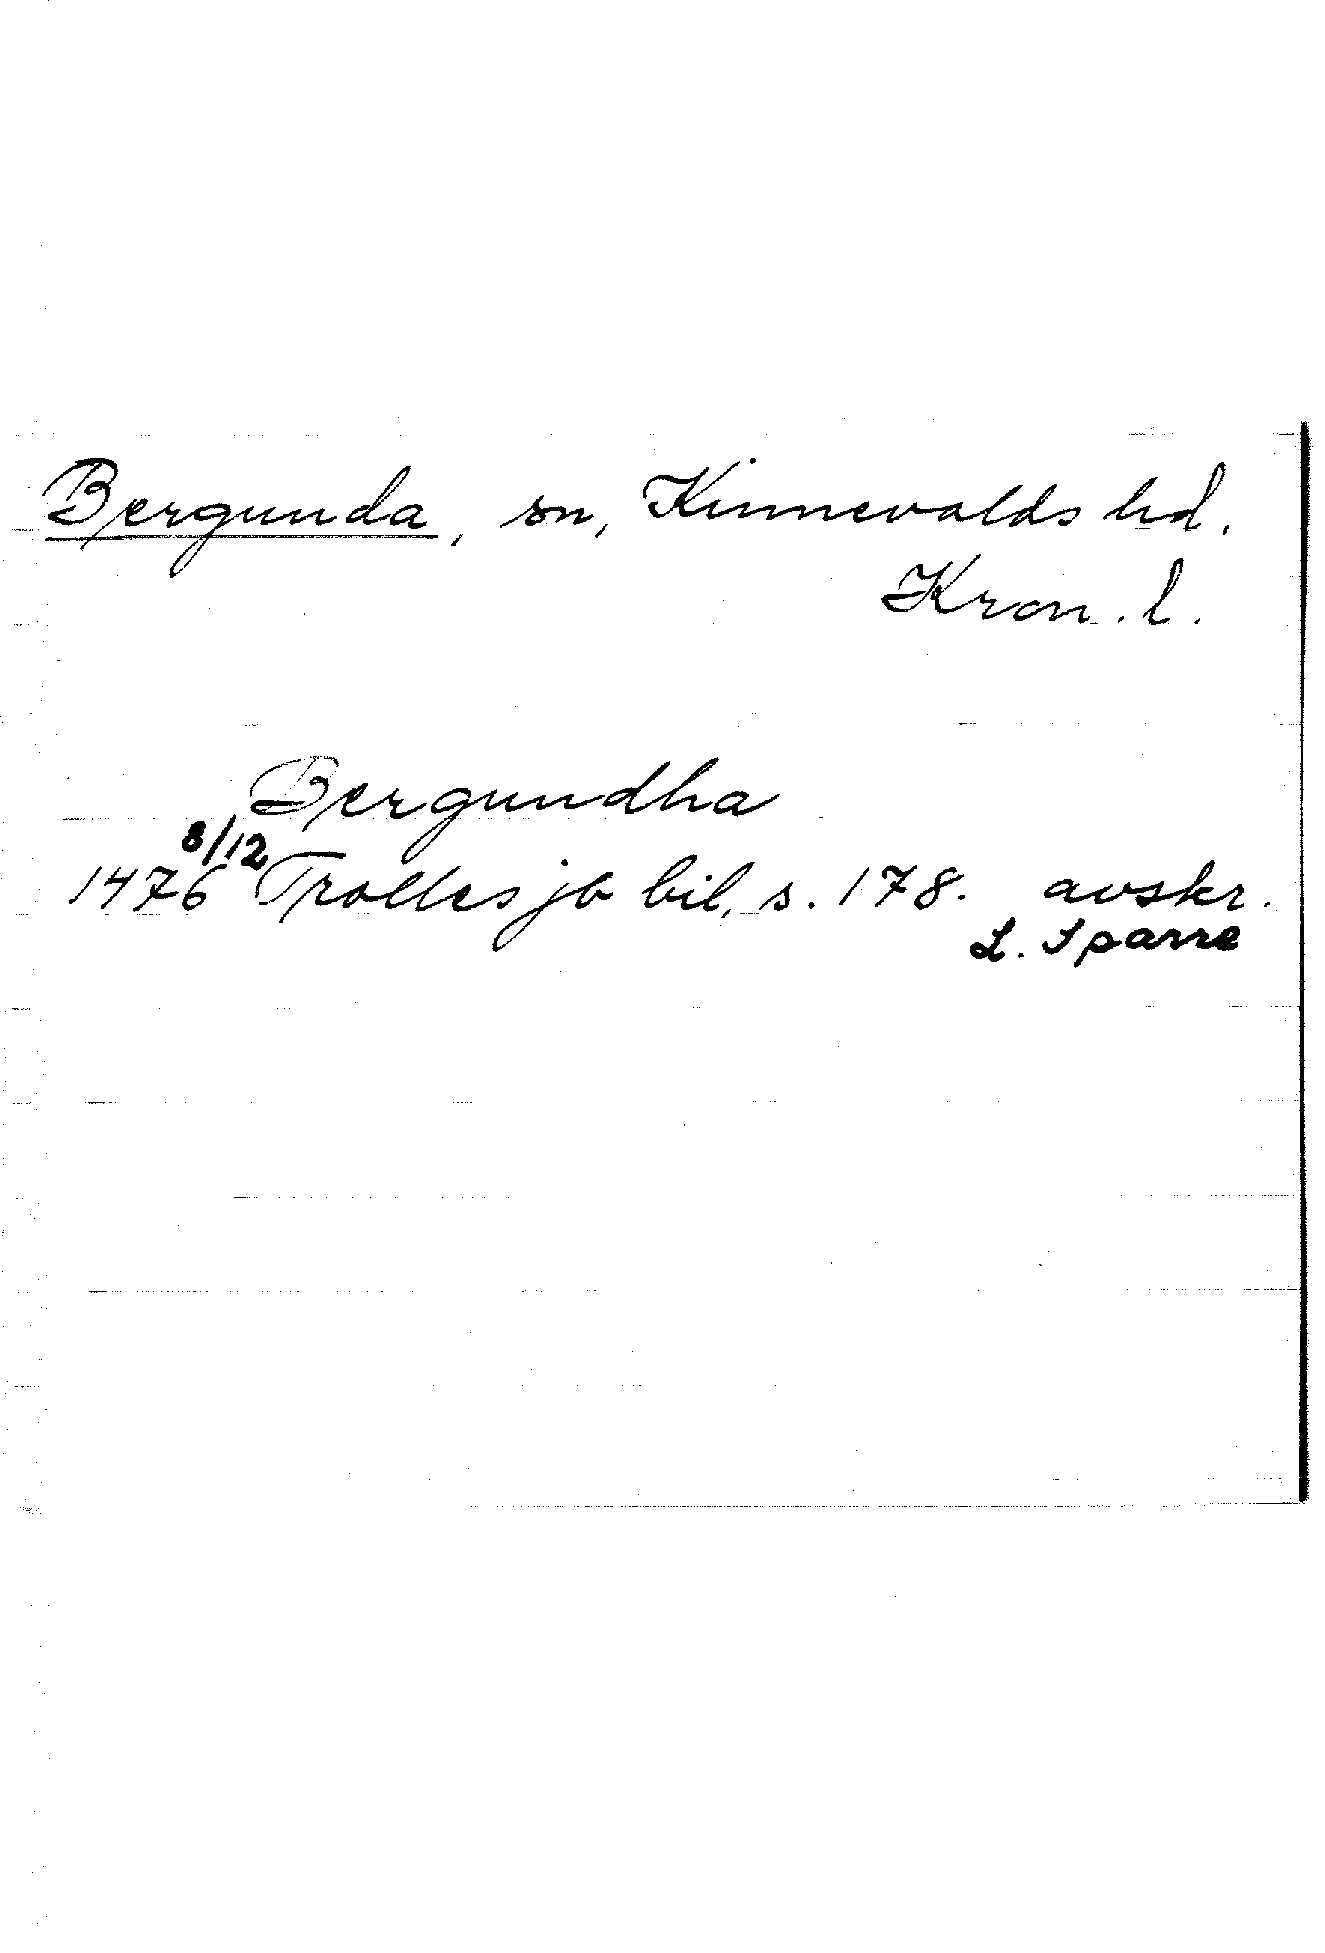 Bergunda, sn, Kinnevalds hd.
Kron. l.
Bergundha
1476 8/12 Trolles jb bil. s. 178. avskr.
L. Sparre